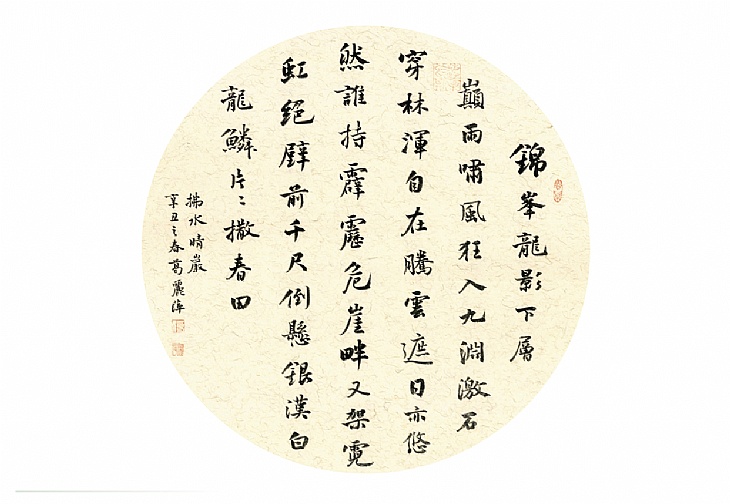 錦峯龍影下層
巔雨嘯風狂入九淵激石
穿林渾自在騰雲遮日亦悠
然誰持霹靂危崖畔又架霓
虹絕壁前千尺倒懸銀漢白
龍鱗片々撒春田
拂水晴巖
辛丑之春葛麗萍